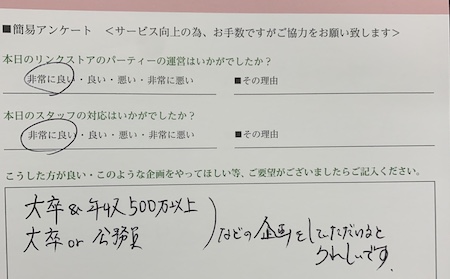 ■簡易アンケート ＜サービス向上の為、お手数ですがご協力をお願い致します＞
本日のリンクストアのパーティーの運営はいかがでしたか？
非常に良い・良い・悪い・非常に悪い ■その理由
本日のスタッフの対応はいかがでしたか？
非常に良い・良い・悪い・非常に悪い ■その理由
こうした方が良い・このような企画をやってほしい等、ご要望がございましたらご記入ください。
大卒&年収500万以上
大卒or公務員
)などの企画をしていただけると
うれしいです。